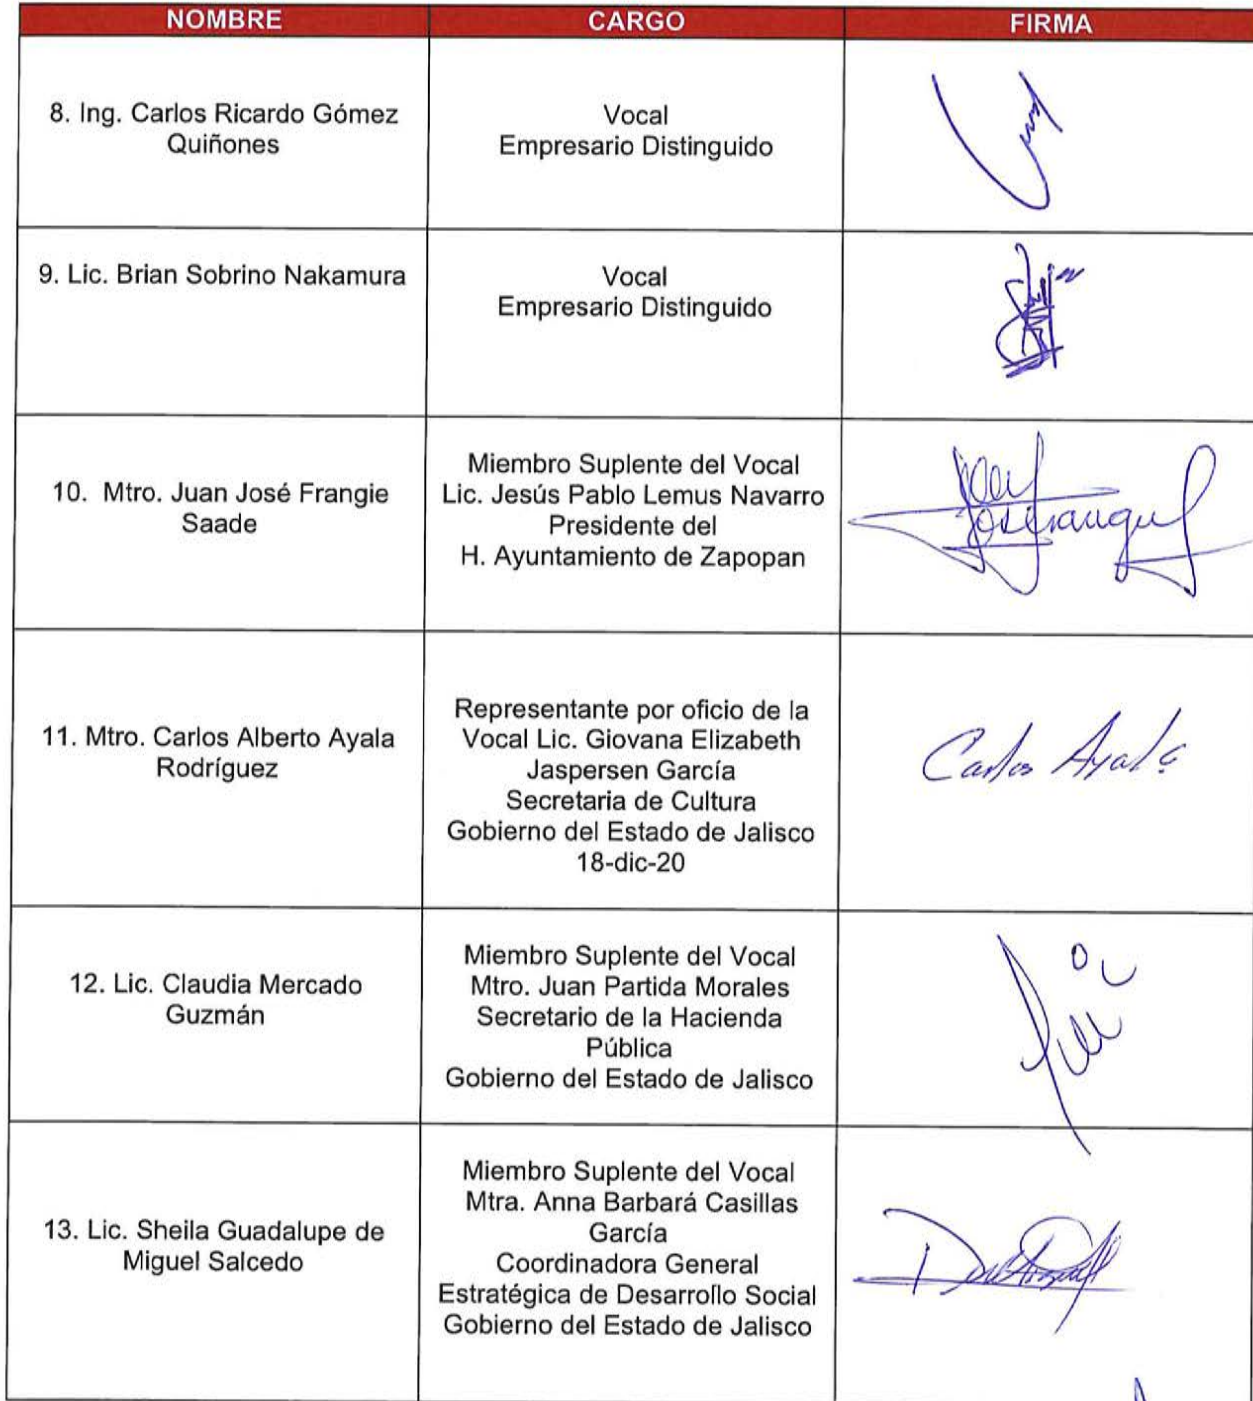 NOMBRE CARGO FIRMA
8. Ing. Carlos Ricardo Gómez
Quiñones
Vocal
Empresario Distinguido
9. Lic. Brian Sobrino Nakamura
Vocal
Empresario Distinguido
10. Mtro. Juan José Frangie
Saade
Miembro Suplente del Vocal
Lic. Jesús Pablo Lemus Navarro
Presidente del
H. Ayuntamiento de Zapopan
11. Mtro. Carlos Alberto Ayala
Rodríguez
Representante por oficio de la
Vocal Lic. Giovana Elizabeth
Jaspersen García
Secretaria de Cultura
Gobierno del Estado de Jalisco
18-dic-20
Carlos Ayala
12. Lic. Claudia Mercado
Guzmán
Miembro Suplente del Vocal
Mtro. Juan Partida Morales
Secretario de la Hacienda
Pública
Gobierno del Estado de Jalisco
13. Lic. Sheila Guadalupe de
Miguel Salcedo
Miembro Suplente del Vocal
Mtra. Anna Barbará Casillas
García
Coordinadora General
Estratégica de Desarrollo Social
Gobierno del Estado de Jalisco